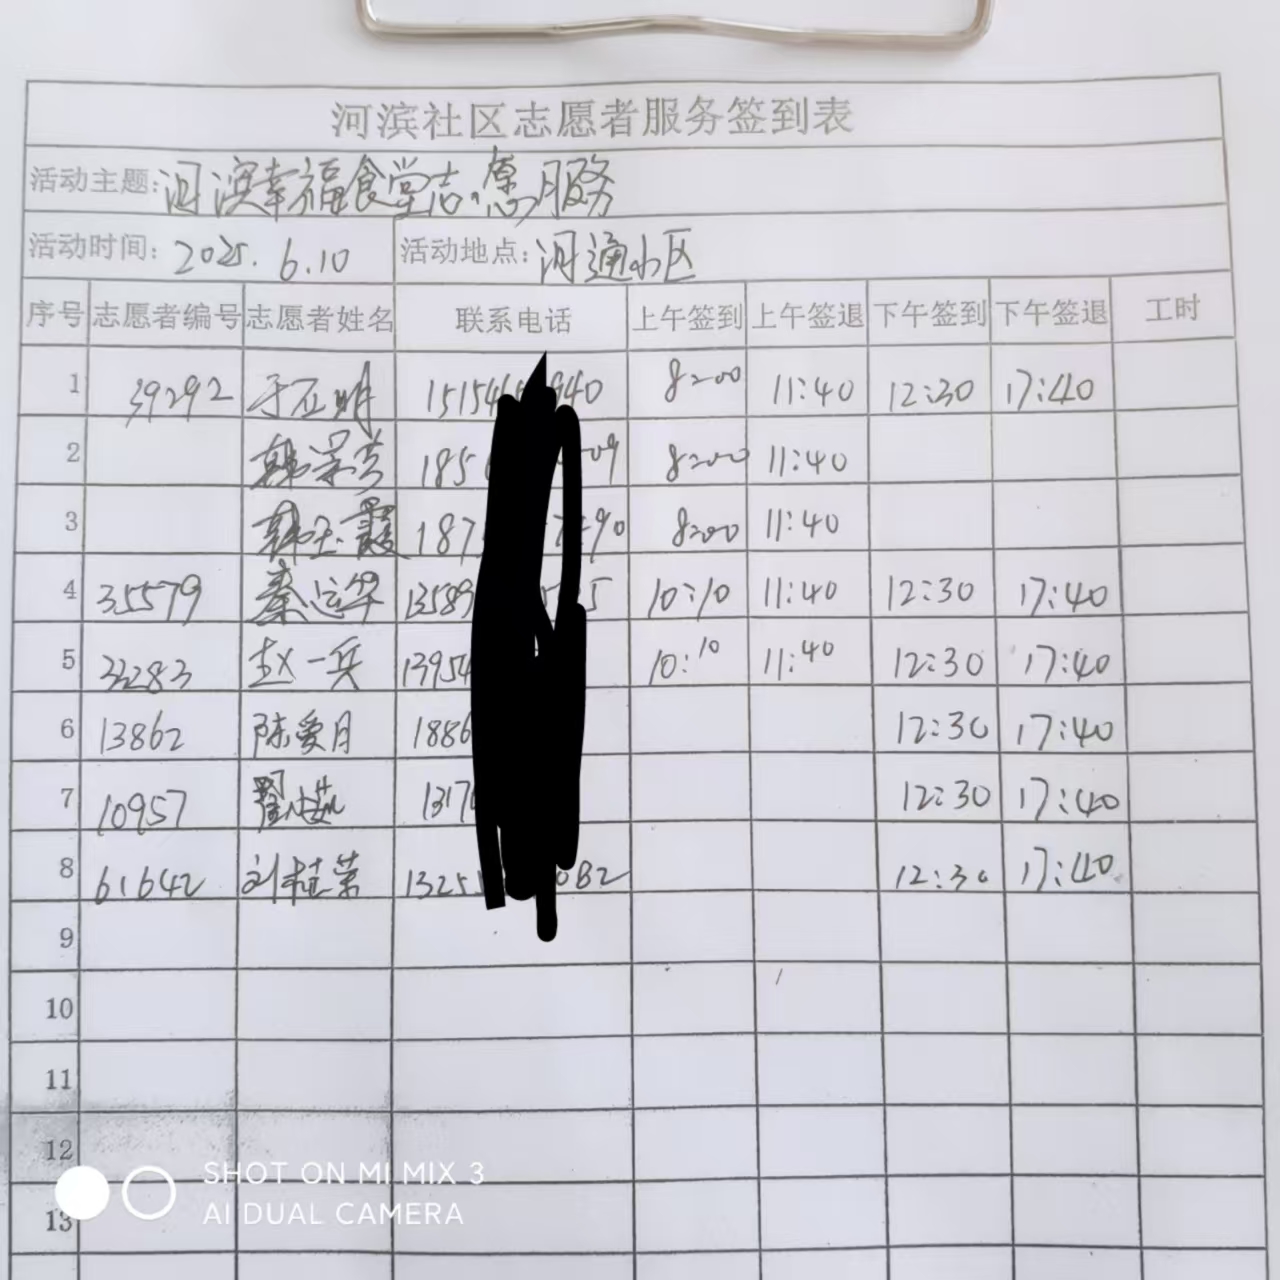 河滨社区志愿者服务签到表
活动主题: 河滨幸福食堂志愿服务
活动时间: 2025.6.10 活动地点: 河通小区
序号 志愿者编号 志愿者姓名 联系电话 上午签到 上午签退 下午签到 下午签退 工时
1 39292 8:00 11:40 12:30 17:40
2 8:00 11:40
3 韩玉霞 8:00 11:40
4 35579 秦运华 10:10 11:40 12:30 17:40
5 33283 赵一兵 10:10 11:40 12:30 17:40
6 13862 陈爱月 12:30 17:40
7 10957 12:30 17:40
8 61642 刘桂荣 12:30 17:40
9
10
11
12
13
SHOT ON MI MIX 3
AI DUAL CAMERA